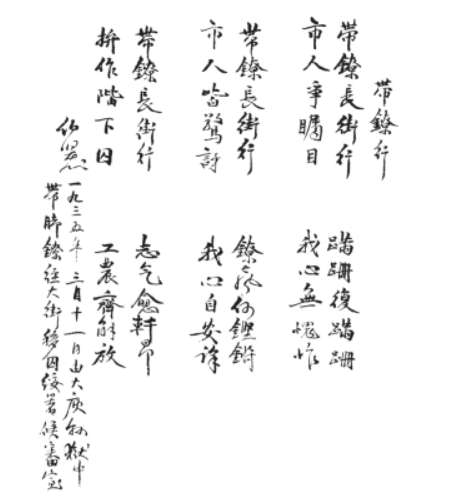 帶鐐行
帶鐐長街行 蹣跚復蹣跚
市人爭矚目 我心無愧怍
帶鐐長街行 鐐聲何鏗鏘
市人皆驚訝 我心自安詳
帶鐐長街行 志氣愈軒昂
拚作階下囚 工農齊解放
伯堅
一九三五年三月十一日由大庾縣獄中
帶腳鐐經大街移囚綏署候審室